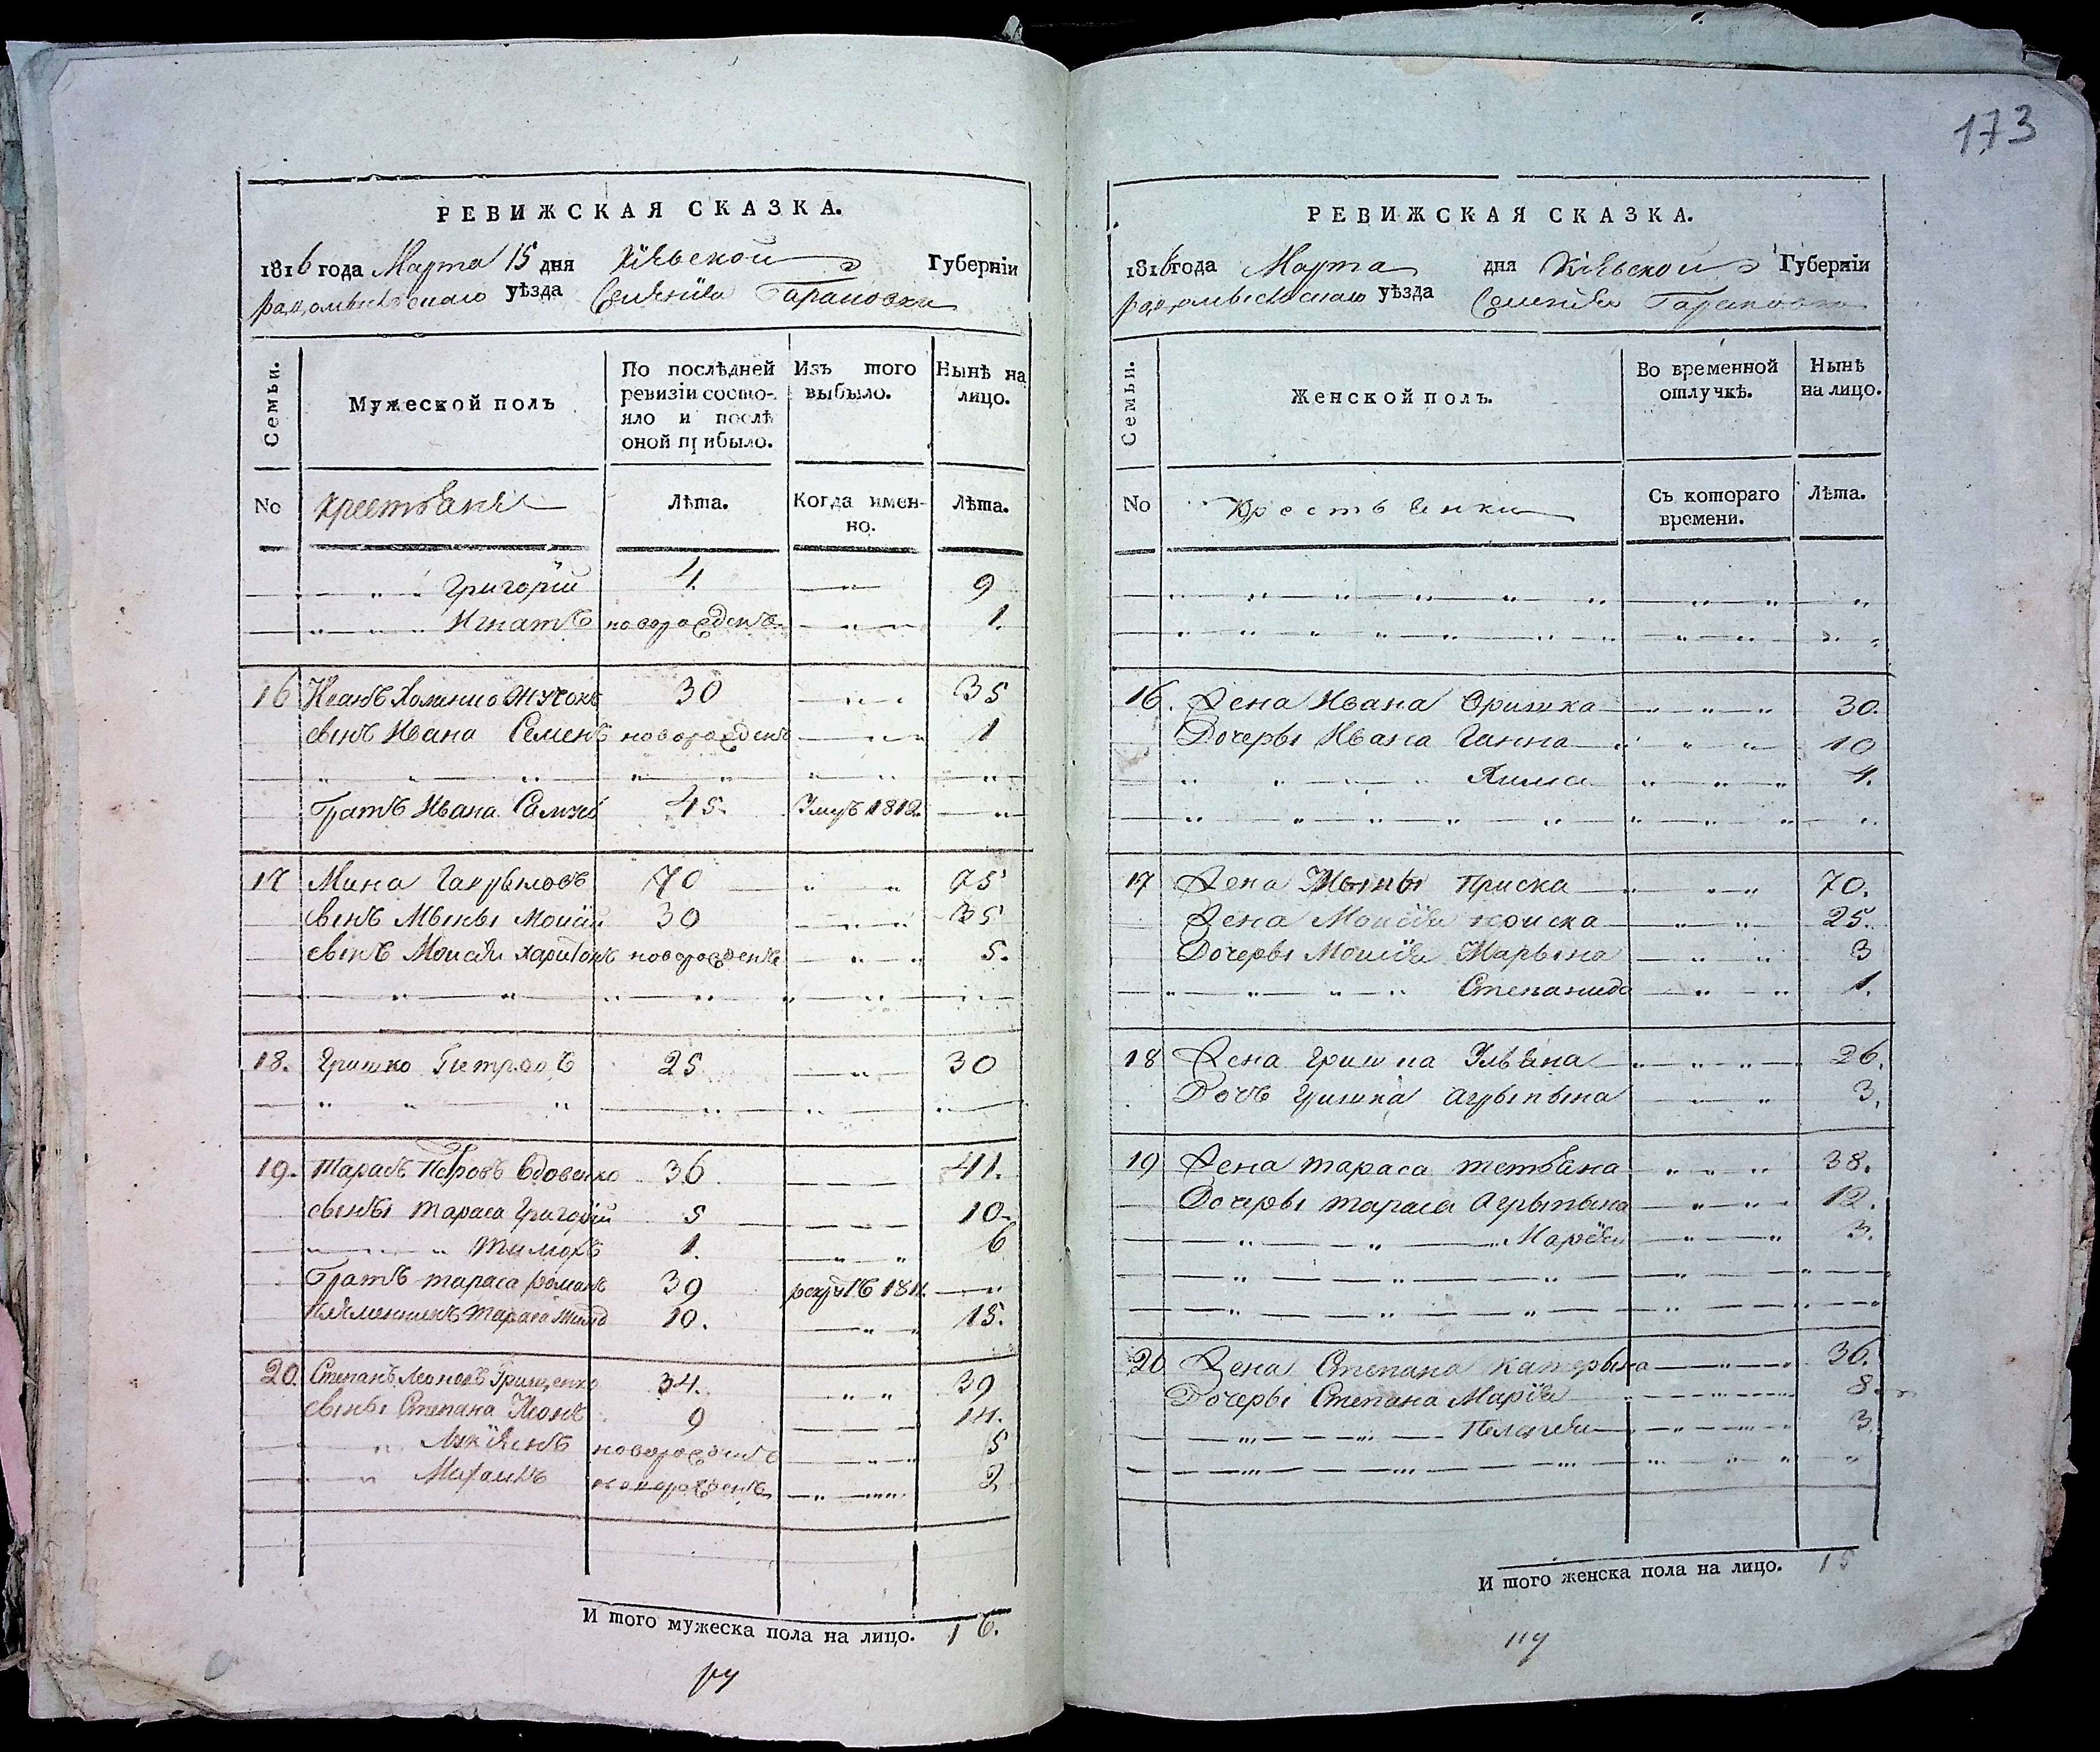 173
РЕВИЖСКАЯ СКАЗКА.
1816 года Марта 15 дня Кіевской Губерніи
радомысльскаго уѣзда Селенія Гарановки
Семьи.
Мужеской полъ
По послѣдней ревизіи состояло и послѣ оной прибыло.
Изъ того выбыло.
Нынѣ на лицо.
No Крестьяне Лѣта. Когда именно. Лѣта.
Григорій 4. 9
Игнатъ новорожденъ 1.
16 Иванъ Хоменко 30 35
сынъ Ивана Семенъ новорожденъ 1
Братъ Ивана 45. Умръ 1812.
17 Мина Гаврыловъ 70 75
сынъ Мыны Моисій 30 35
сынъ Моисѣя Харитонъ новорожденъ 5.
18. Гришко Петровъ 25 30
19. Тарасъ Петровъ Вдовенко 36 41.
сыны Тараса Григорій 5 10
Тимохъ 1. 6
Братъ тараса романъ 39 рекрутъ 1811.
племенникъ Тараса 10. 15.
20. Степанъ Леоновъ Грищенко 34. 39
сыны Степана Леонъ 9 14.
Лукіянъ новорожденъ 5
Михаилъ новорожденъ 2
И того мужеска пола на лицо. 16.
РЕВИЖСКАЯ СКАЗКА.
1816 года Марта дня Кіевской Губерніи
радомысльскаго уѣзда Селенія Гарановки
Семьи.
Женской полъ.
Во временной отлучкѣ.
Нынѣ на лицо.
No Крестьянки Съ котораго времени. Лѣта.
16. Жена Ивана Оришка 30.
Дочеры Ивана Ганна 10
4.
17 Жена Мыны Приска 70.
Жена Моисѣя 25.
Дочеры Моисѣя Марьина 3
Степанида 1.
18 Жена Гришка Ульяна 26.
Дочь Гришка Агрыпына 3.
19 Жена тараса тетьяна 38.
Дочеры тараса Агрыпына 12.
Марія 3.
20 Жена Степана Катерына 36.
Дочеры Степана Марія 8.
Пелагія 3
И того женска пола на лицо. 15